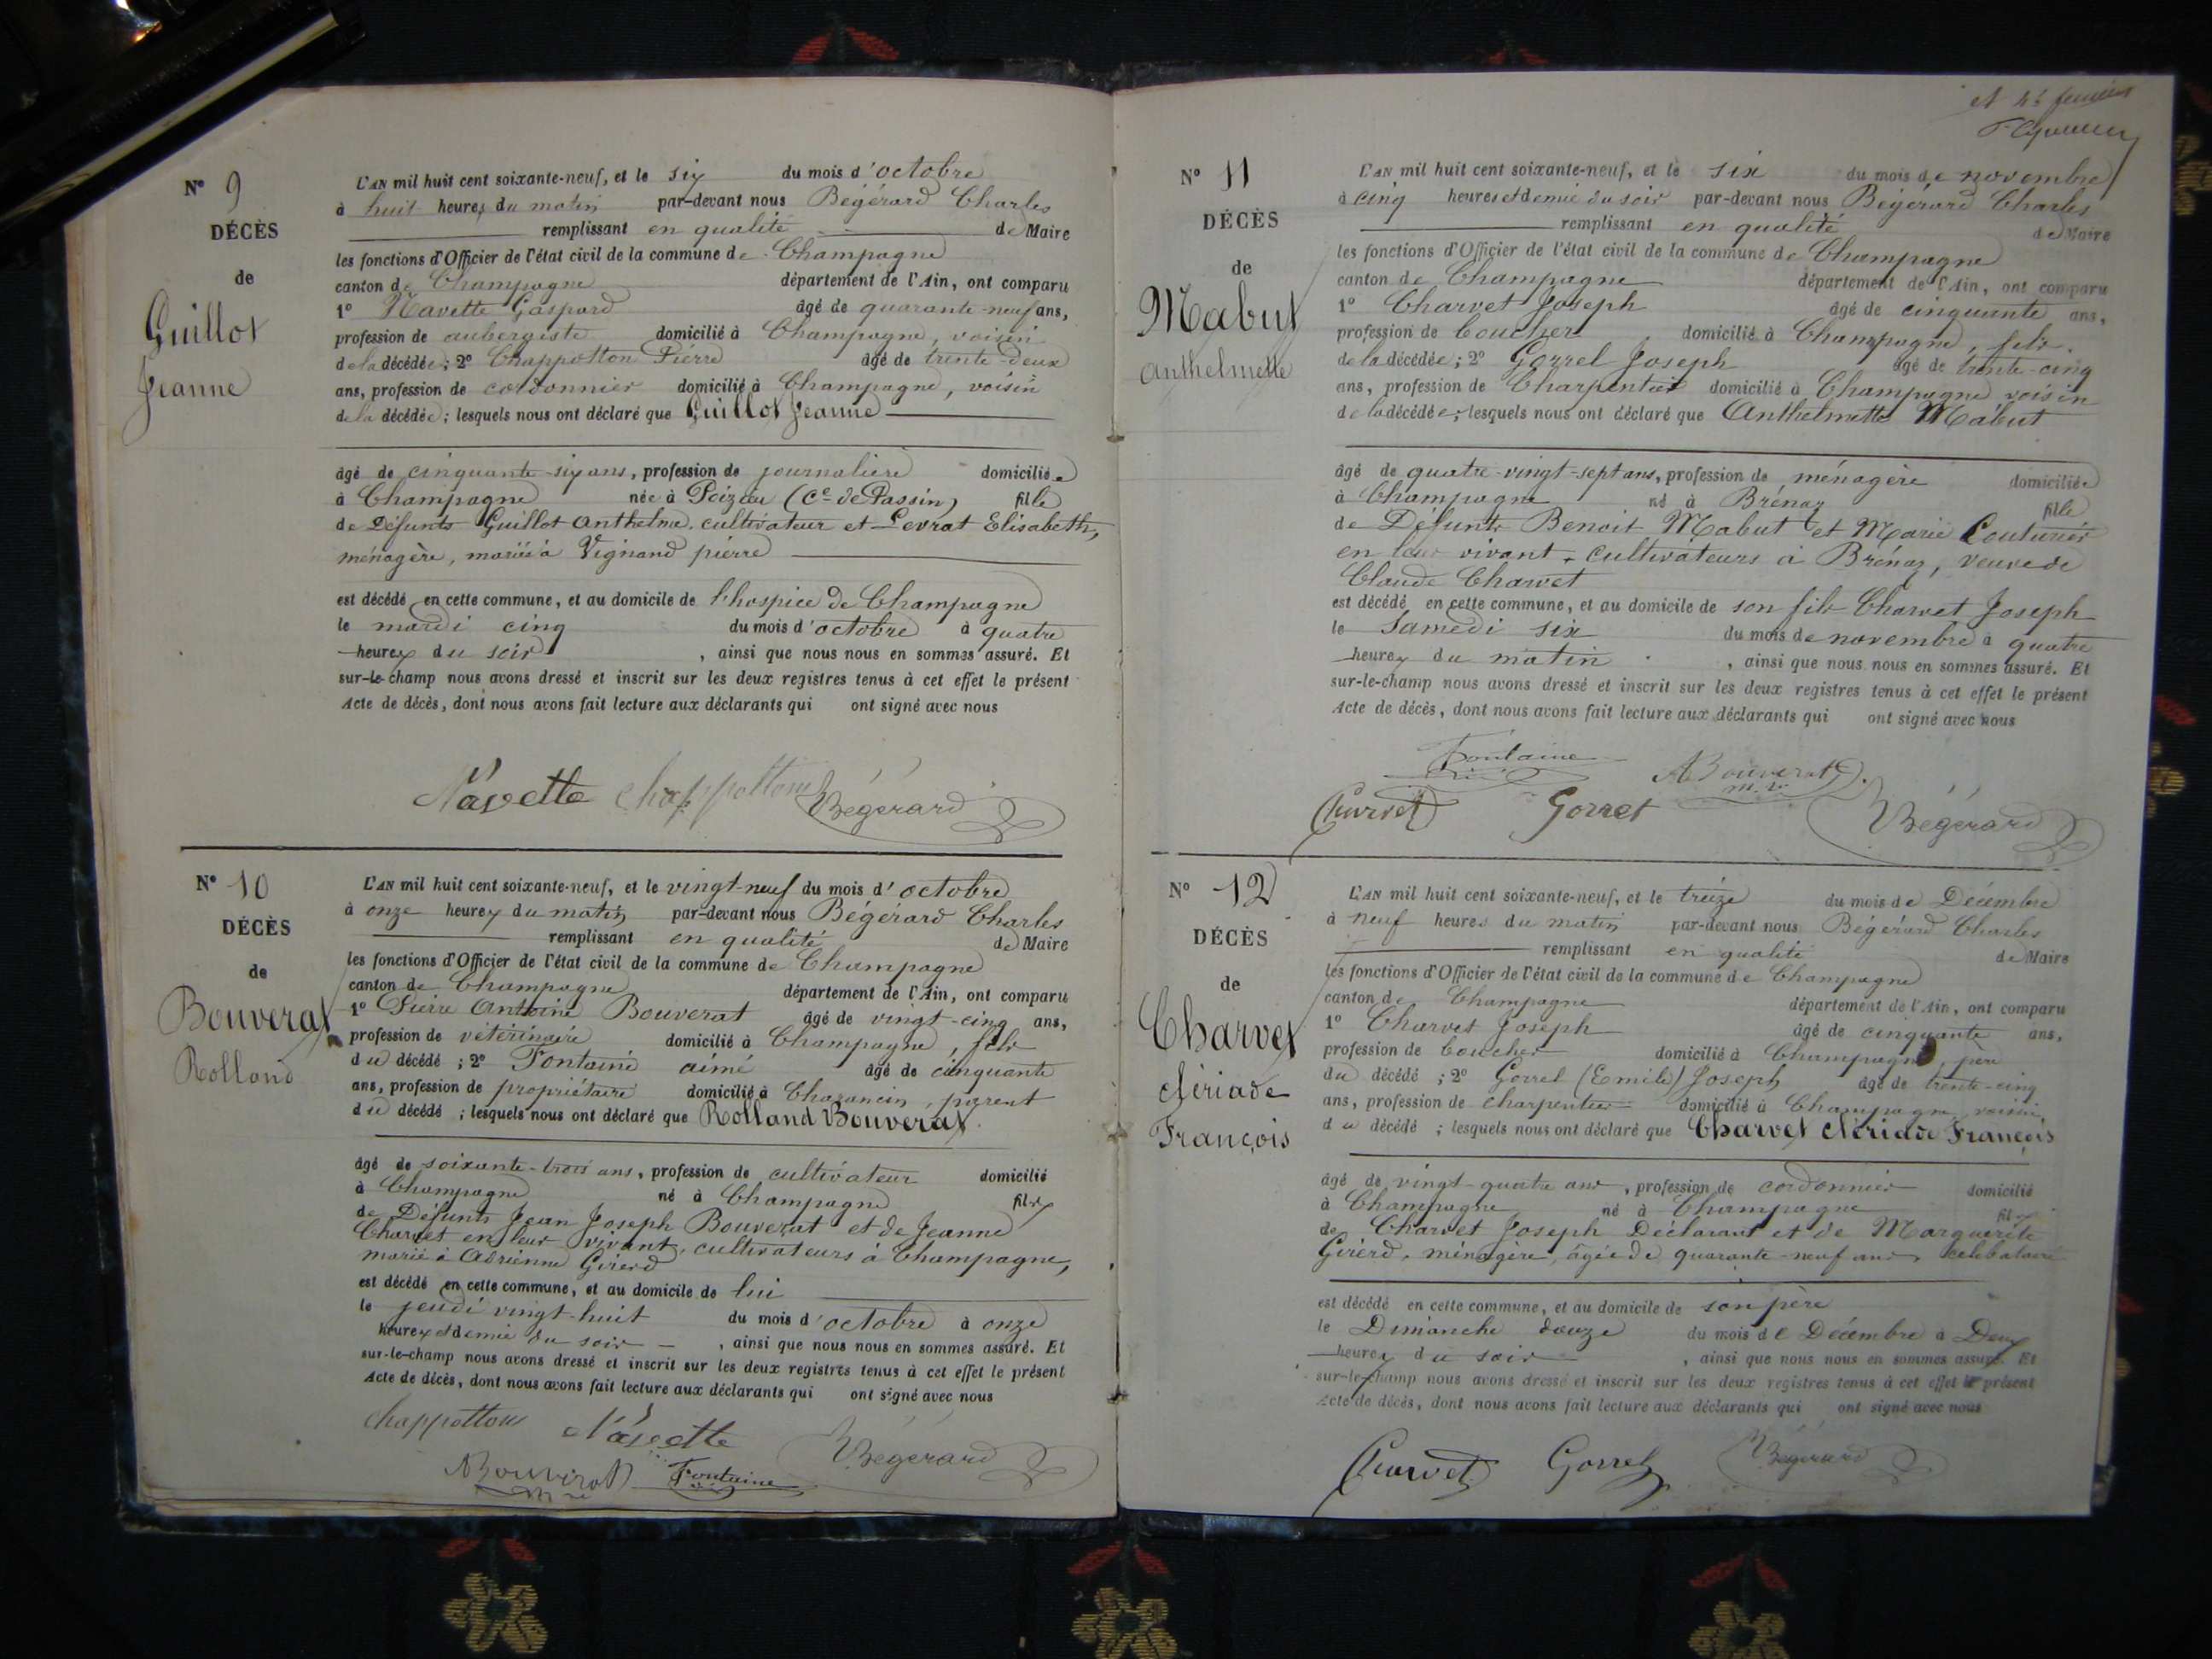 N° 9
DÉCÈS
de
Guillot
Jeanne
L'AN mil huit cent soixante-neuf, et le six du mois d'octobre
à huit heures du matin par-devant nous Bégérard Charles
remplissant en qualité de Maire
les fonctions d'Officier de l'état civil de la commune de Champagne
canton de Champagne département de l'Ain, ont comparu
1° Navette Gaspard âgé de quarante-neuf ans,
profession de aubergiste domicilié à Champagne, voisin
de la décédée; 2° Chappotton Pierre âgé de trente-deux
ans, profession de cordonnier domicilié à Champagne, voisin
de la décédée; lesquels nous ont déclaré que Guillot Jeanne
âgé de cinquante-six ans, profession de journalière domiciliée
à Champagne née à Poizieu (Cne de Passin) fille
de Défunts Guillot Anthelme cultivateur et Levrat Elisabeth,
ménagère, mariée à Vignand pierre
est décédé en cette commune, et au domicile de l'hospice de Champagne
le mardi cinq du mois d'octobre à quatre
heures du soir, ainsi que nous nous en sommes assuré. Et
sur-le-champ nous avons dressé et inscrit sur les deux registres tenus à cet effet le présent
Acte de décès, dont nous avons fait lecture aux déclarants qui ont signé avec nous
Navette Chappotton Bégérard
N° 10
DÉCÈS
de
Bouverat
Rolland
L'AN mil huit cent soixante-neuf, et le vingt-neuf du mois d'octobre
à onze heures du matin par-devant nous Bégérard Charles
remplissant en qualité de Maire
les fonctions d'Officier de l'état civil de la commune de Champagne
canton de Champagne département de l'Ain, ont comparu
1° Pierre Antoine Bouverat âgé de vingt-cinq ans,
profession de vétérinaire domicilié à Champagne, fils
du décédé; 2° Fontaine aimé âgé de cinquante
ans, profession de propriétaire domicilié à Chavancin, parent
du décédé; lesquels nous ont déclaré que Rolland Bouverat
âgé de soixante-trois ans, profession de cultivateur domicilié
à Champagne né à Champagne fils
de Défunts Jean Joseph Bouverat et de Jeanne
Charvet en leur vivant cultivateurs à Champagne,
marié à Adrienne Girerd
est décédé en cette commune, et au domicile de lui
le jeudi vingt-huit du mois d'octobre à onze
heures et demie du soir, ainsi que nous nous en sommes assuré. Et
sur-le-champ nous avons dressé et inscrit sur les deux registres tenus à cet effet le présent
Acte de décès, dont nous avons fait lecture aux déclarants qui ont signé avec nous
Chappotton Navette Bégérard
Bouverat Fontaine
N° 11
DÉCÈS
de
Mabut
Anthelmette
L'AN mil huit cent soixante-neuf, et le six du mois de novembre
à cinq heures et demie du soir par-devant nous Bégérard Charles
remplissant en qualité de Maire
les fonctions d'Officier de l'état civil de la commune de Champagne
canton de Champagne département de l'Ain, ont comparu
1° Charvet Joseph âgé de cinquante ans,
profession de boucher domicilié à Champagne, fils
de la décédée; 2° Gorrel Joseph âgé de trente-cinq
ans, profession de Charpentier domicilié à Champagne voisin
de la décédée; lesquels nous ont déclaré que Anthelmette Mabut
âgé de quatre-vingt-sept ans, profession de ménagère domiciliée
à Champagne né à Brénaz fille
de Défunts Benoit Mabut et Marie Couturier
en leur vivant cultivateurs à Brénaz, veuve de
Claude Charvet
est décédé en cette commune, et au domicile de son fils Charvet Joseph
le Samedi six du mois de novembre à quatre
heures du matin, ainsi que nous nous en sommes assuré. Et
sur-le-champ nous avons dressé et inscrit sur les deux registres tenus à cet effet le présent
Acte de décès, dont nous avons fait lecture aux déclarants qui ont signé avec nous
Fontaine Bouverat
Charvet Gorrel Bégérard
N° 12
DÉCÈS
de
Charvet
Cériade
François
L'AN mil huit cent soixante-neuf, et le treize du mois de Décembre
à neuf heures du matin par-devant nous Bégérard Charles
remplissant en qualité de Maire
les fonctions d'Officier de l'état civil de la commune de Champagne
canton de Champagne département de l'Ain, ont comparu
1° Charvet Joseph âgé de cinquante ans,
profession de boucher domicilié à Champagne, père
du décédé; 2° Gorrel (Emile) Joseph âgé de trente-cinq
ans, profession de charpentier domicilié à Champagne voisin
du décédé; lesquels nous ont déclaré que Charvet Cériade François
âgé de vingt-quatre ans, profession de cordonnier domicilié
à Champagne né à Champagne fils
de Charvet Joseph Déclarant et de Marguerite
Girerd, ménagère, âgée de quarante-neuf ans, célibataire
est décédé en cette commune, et au domicile de son père
le Dimanche douze du mois de Décembre à Deux
heures du soir, ainsi que nous nous en sommes assuré. Et
sur-le-champ nous avons dressé et inscrit sur les deux registres tenus à cet effet le présent
Acte de décès, dont nous avons fait lecture aux déclarants qui ont signé avec nous
Charvet Gorrel Bégérard